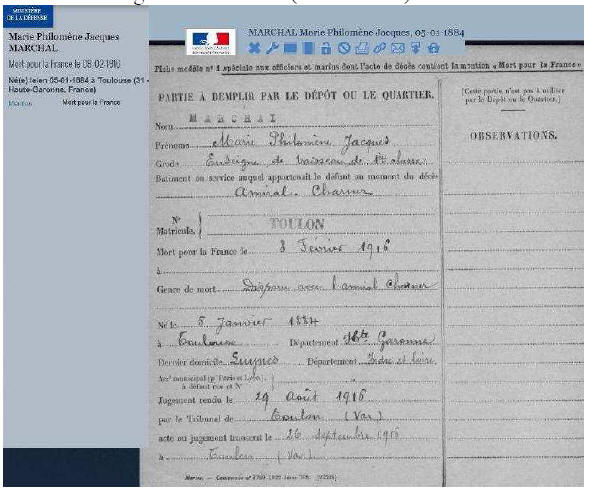 MINISTÈRE
DE LA DÉFENSE
Marie Philomène Jacques
MARCHAL
Mort pour la France le 08-02-1916
Né(e) le/en 05-01-1884 à Toulouse (31 -
Haute-Garonne, France)
Marchal Mort pour la France
MARCHAL Marie Philomène Jacques, 05-01-1884
Fiche modèle n° 1 spéciale aux officiers et marins dont l'acte de décès contient la mention « Mort pour la France »
PARTIE A REMPLIR PAR LE DÉPÔT OU LE QUARTIER.
(Cette partie n'est pas à utiliser
par le Dépôt ou le Quartier.)
OBSERVATIONS.
Nom MARCHAL
Prénoms Marie Philomène Jacques
Grade Enseigne de vaisseau de 1re classe
Bâtiment ou service auquel appartenait le défunt au moment du décès
Amiral Charner
N°
Matricule. TOULON
Mort pour la France le 8 Février 1916
à
Genre de mort Disparu avec l'amiral Charner
Né le 5 Janvier 1884
à Toulouse Département Hte Garonne
Dernier domicile Luynes Département Indre et Loire
Arrt municipal (p' Paris et Lyon)
à défaut rue et N°
Jugement rendu le 29 Août 1916
par le Tribunal de Toulon (Var)
acte ou jugement transcrit le 26 Septembre 1916
à Toulon (Var)